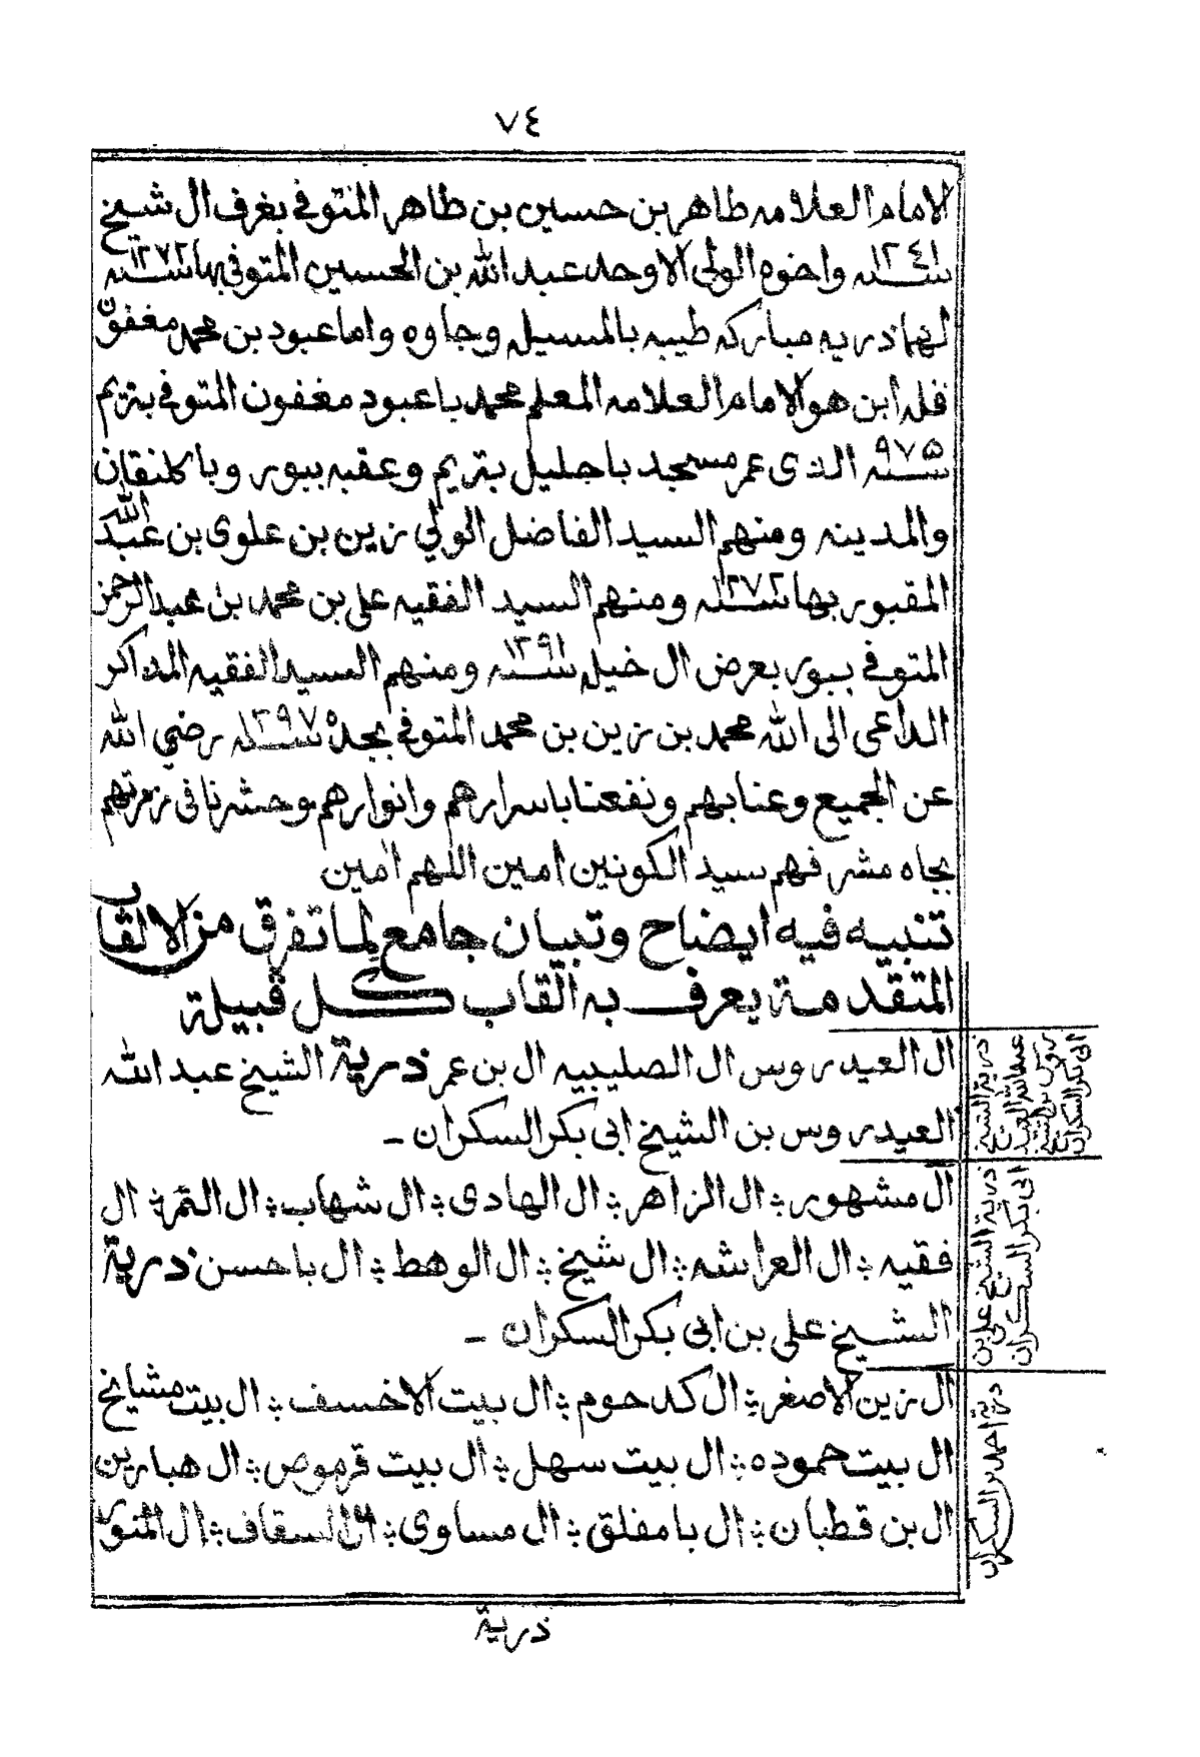 ٧٤
الامام العلامه طاهر بن حسين بن طاهر المتوفى بغرف ال شيخ
سنه ١٢٤١ واخوه الولي الاوحد عبد الله بن الحسين المتوفى بها سنه ١٢٧٢
لهما ذريه مباركه طيبه بالمسيله وجاوه واما عبود بن محمد مغفون
فله ابن هو الامام العلامه المعلم محمد باعبود مغفون المتوفى بتريم
سنه ٩٧٥ الذى عمر مسجد باجليل بتريم وعقبه ببور وباكلنقان
والمدينه ومنهم السيد الفاضل الولي زين بن علوى بن عبد الله
المقبور بها سنه ١٢٧٢ ومنهم السيد الفقيه على بن محمد بن عبد الرحمن
المتوفى ببور بعرض ال خيله سنه ١٢٩١ ومنهم السيد الفقيه المذاكر
الداعى الى الله محمد بن زين بن محمد المتوفى بجده سنه ١٣٩٧ رضي الله
عن الجميع وعنا بهم ونفعنا باسرارهم وانوارهم وحشرنا فى زمرتهم
بجاه مشرفهم سيد الكونين امين اللهم امين
تنبيه فيه ايضاح وتبيان جامع لما تفرق من الالقاب
المتقدمة يعرف به القاب كل قبيلة
ال العيدروس ال الصليبيه ال بن عمر ذرية الشيخ عبد الله
العيدروس بن الشيخ ابى بكر السكران ـ
ال مشهور؛ ال الزاهر؛ ال الهادى؛ ال شهاب؛ ال التمر؛ ال
فقيه؛ ال العرايشه؛ ال شيخ؛ ال الوهط؛ ال باحسن ذرية
الشيخ على بن ابى بكر السكران ـ
ال زين الاصغر؛ ال كدحوم؛ ال بيت الاخسف؛ ال بيت مشايخ
ال بيت حموده؛ ال بيت سهل؛ ال بيت قرموص؛ ال هبارين
ال بن قطبان؛ ال بامفلق؛ ال مساوى؛ ال السقاف؛ ال المنور
ذرية الشيخ
عبد الله العيد
روس بن الشيخ
ابى بكر السكران
ذرية الشيخ على بن
ابى بكر السكران
ذرية احمد بن السكران
ذرية